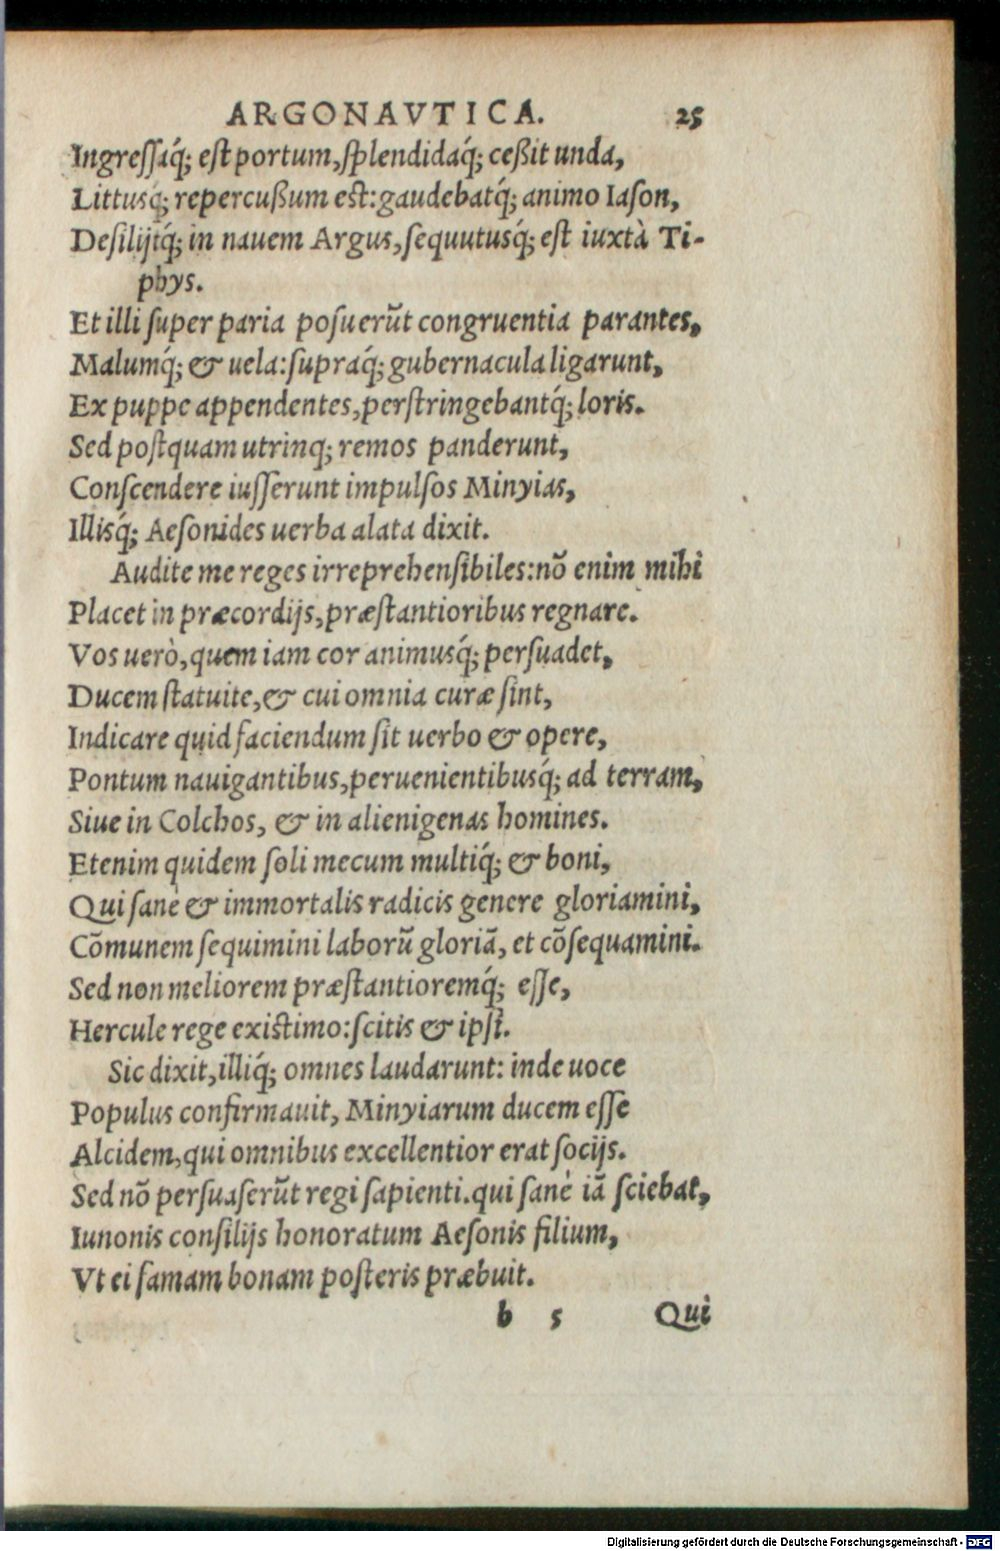 ARGONAVTICA. 25
Ingreſſaq́; eſt portum, ſplendidaq́; ceßit unda,
Littusq́; repercußum est: gaudebatq́; animo Iaſon,
Deſilijtq́; in nauem Argus, ſequutusq́; eſt iuxtà Ti-
phys.
Et illi ſuper paria poſuerũt congruentia parantes,
Malumq́; & uela: ſupraq́; gubernacula ligarunt,
Ex puppe appendentes, perſtringebantq́; loris.
Sed poſtquam utrinq; remos panderunt,
Conſcendere iuſſerunt impulſos Minyias,
Illisq́; Aeſonides uerba alata dixit.
Audite me reges irreprehenſibiles: nõ enim mihi
Placet in præcordijs, præſtantioribus regnare.
Vos uerò, quem iam cor animusq́; perſuadet,
Ducem ſtatuite, & cui omnia curæ ſint,
Indicare quid faciendum ſit uerbo & opere,
Pontum nauigantibus, peruenientibusq́; ad terram,
Siue in Colchos, & in alienigenas homines.
Etenim quidem ſoli mecum multiq́; & boni,
Qui ſane & immortalis radicis genere gloriamini,
Cõmunem ſequimini laborũ gloriã, et cõſequamini.
Sed non meliorem præſtantioremq́; eſſe,
Hercule rege existimo: ſcitis & ipſi.
Sic dixit, illiq́; omnes laudarunt: inde uoce
Populus confirmauit, Minyiarum ducem eſſe
Alcidem, qui omnibus excellentior erat ſocijs.
Sed nõ perſuaſerũt regi ſapienti. qui ſanè iã ſciebat,
Iunonis conſilijs honoratum Aeſonis filium,
Vt ei famam bonam poſteris præbuit.
b 5 Qui
Digitalisierung gefördert durch die Deutsche Forschungsgemeinschaft - DFG